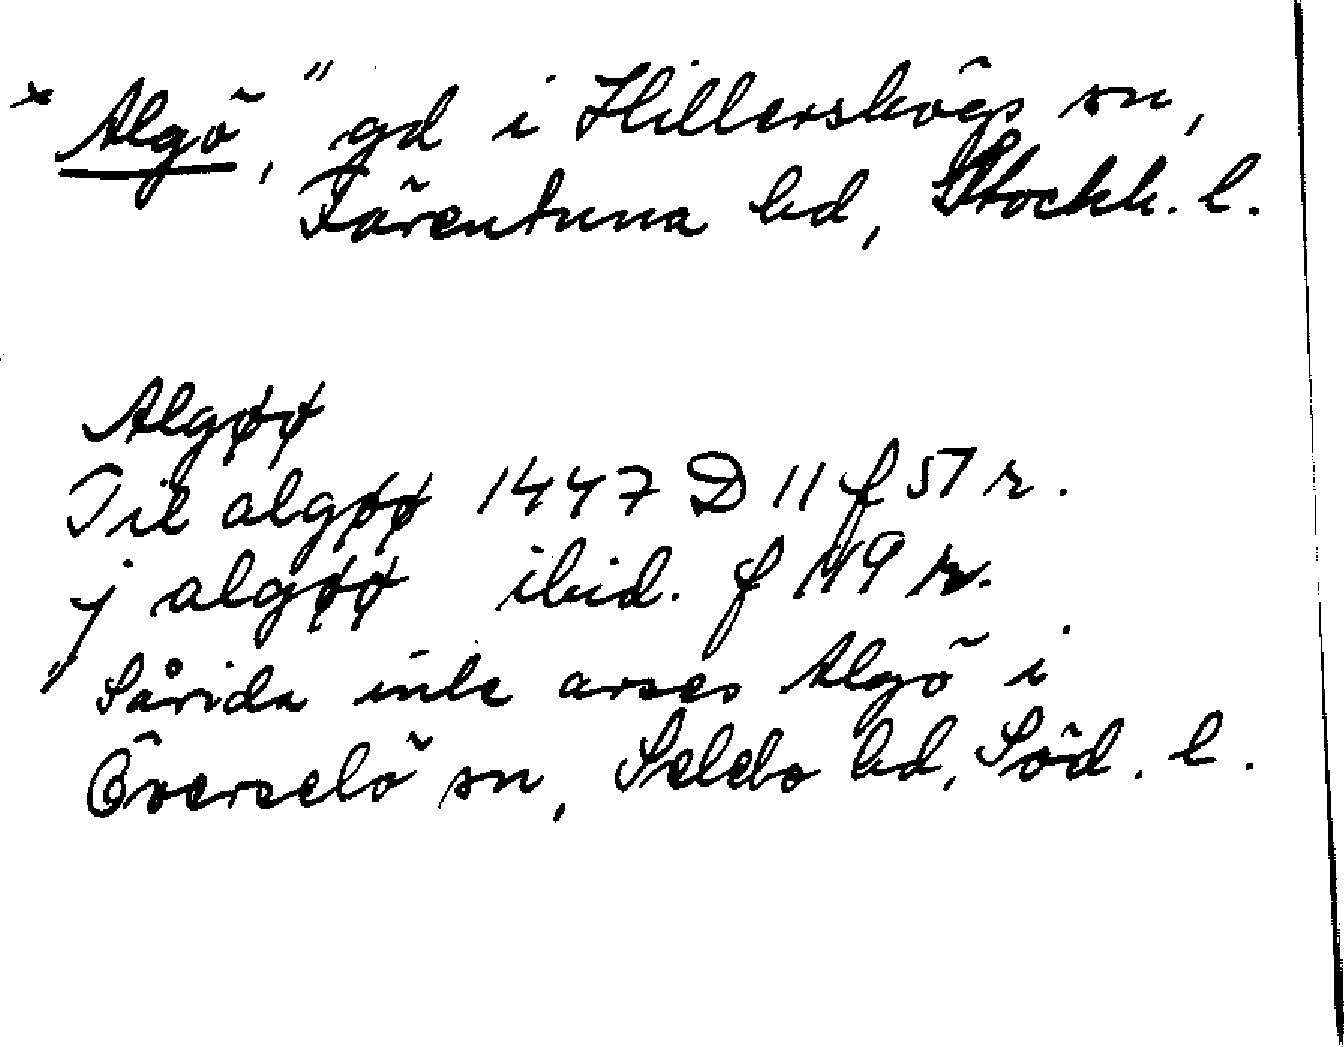 × Algö, " gd i Hillerskögs sn,
Färentuna hd, Stockh. l.
Algøø
Til algøø 1447 D 11 f 57 r.
j algøø ibid. f 119 r.
" Såvida inte avses Algö i
Överselö sn, Selebo hd, Söd. l.